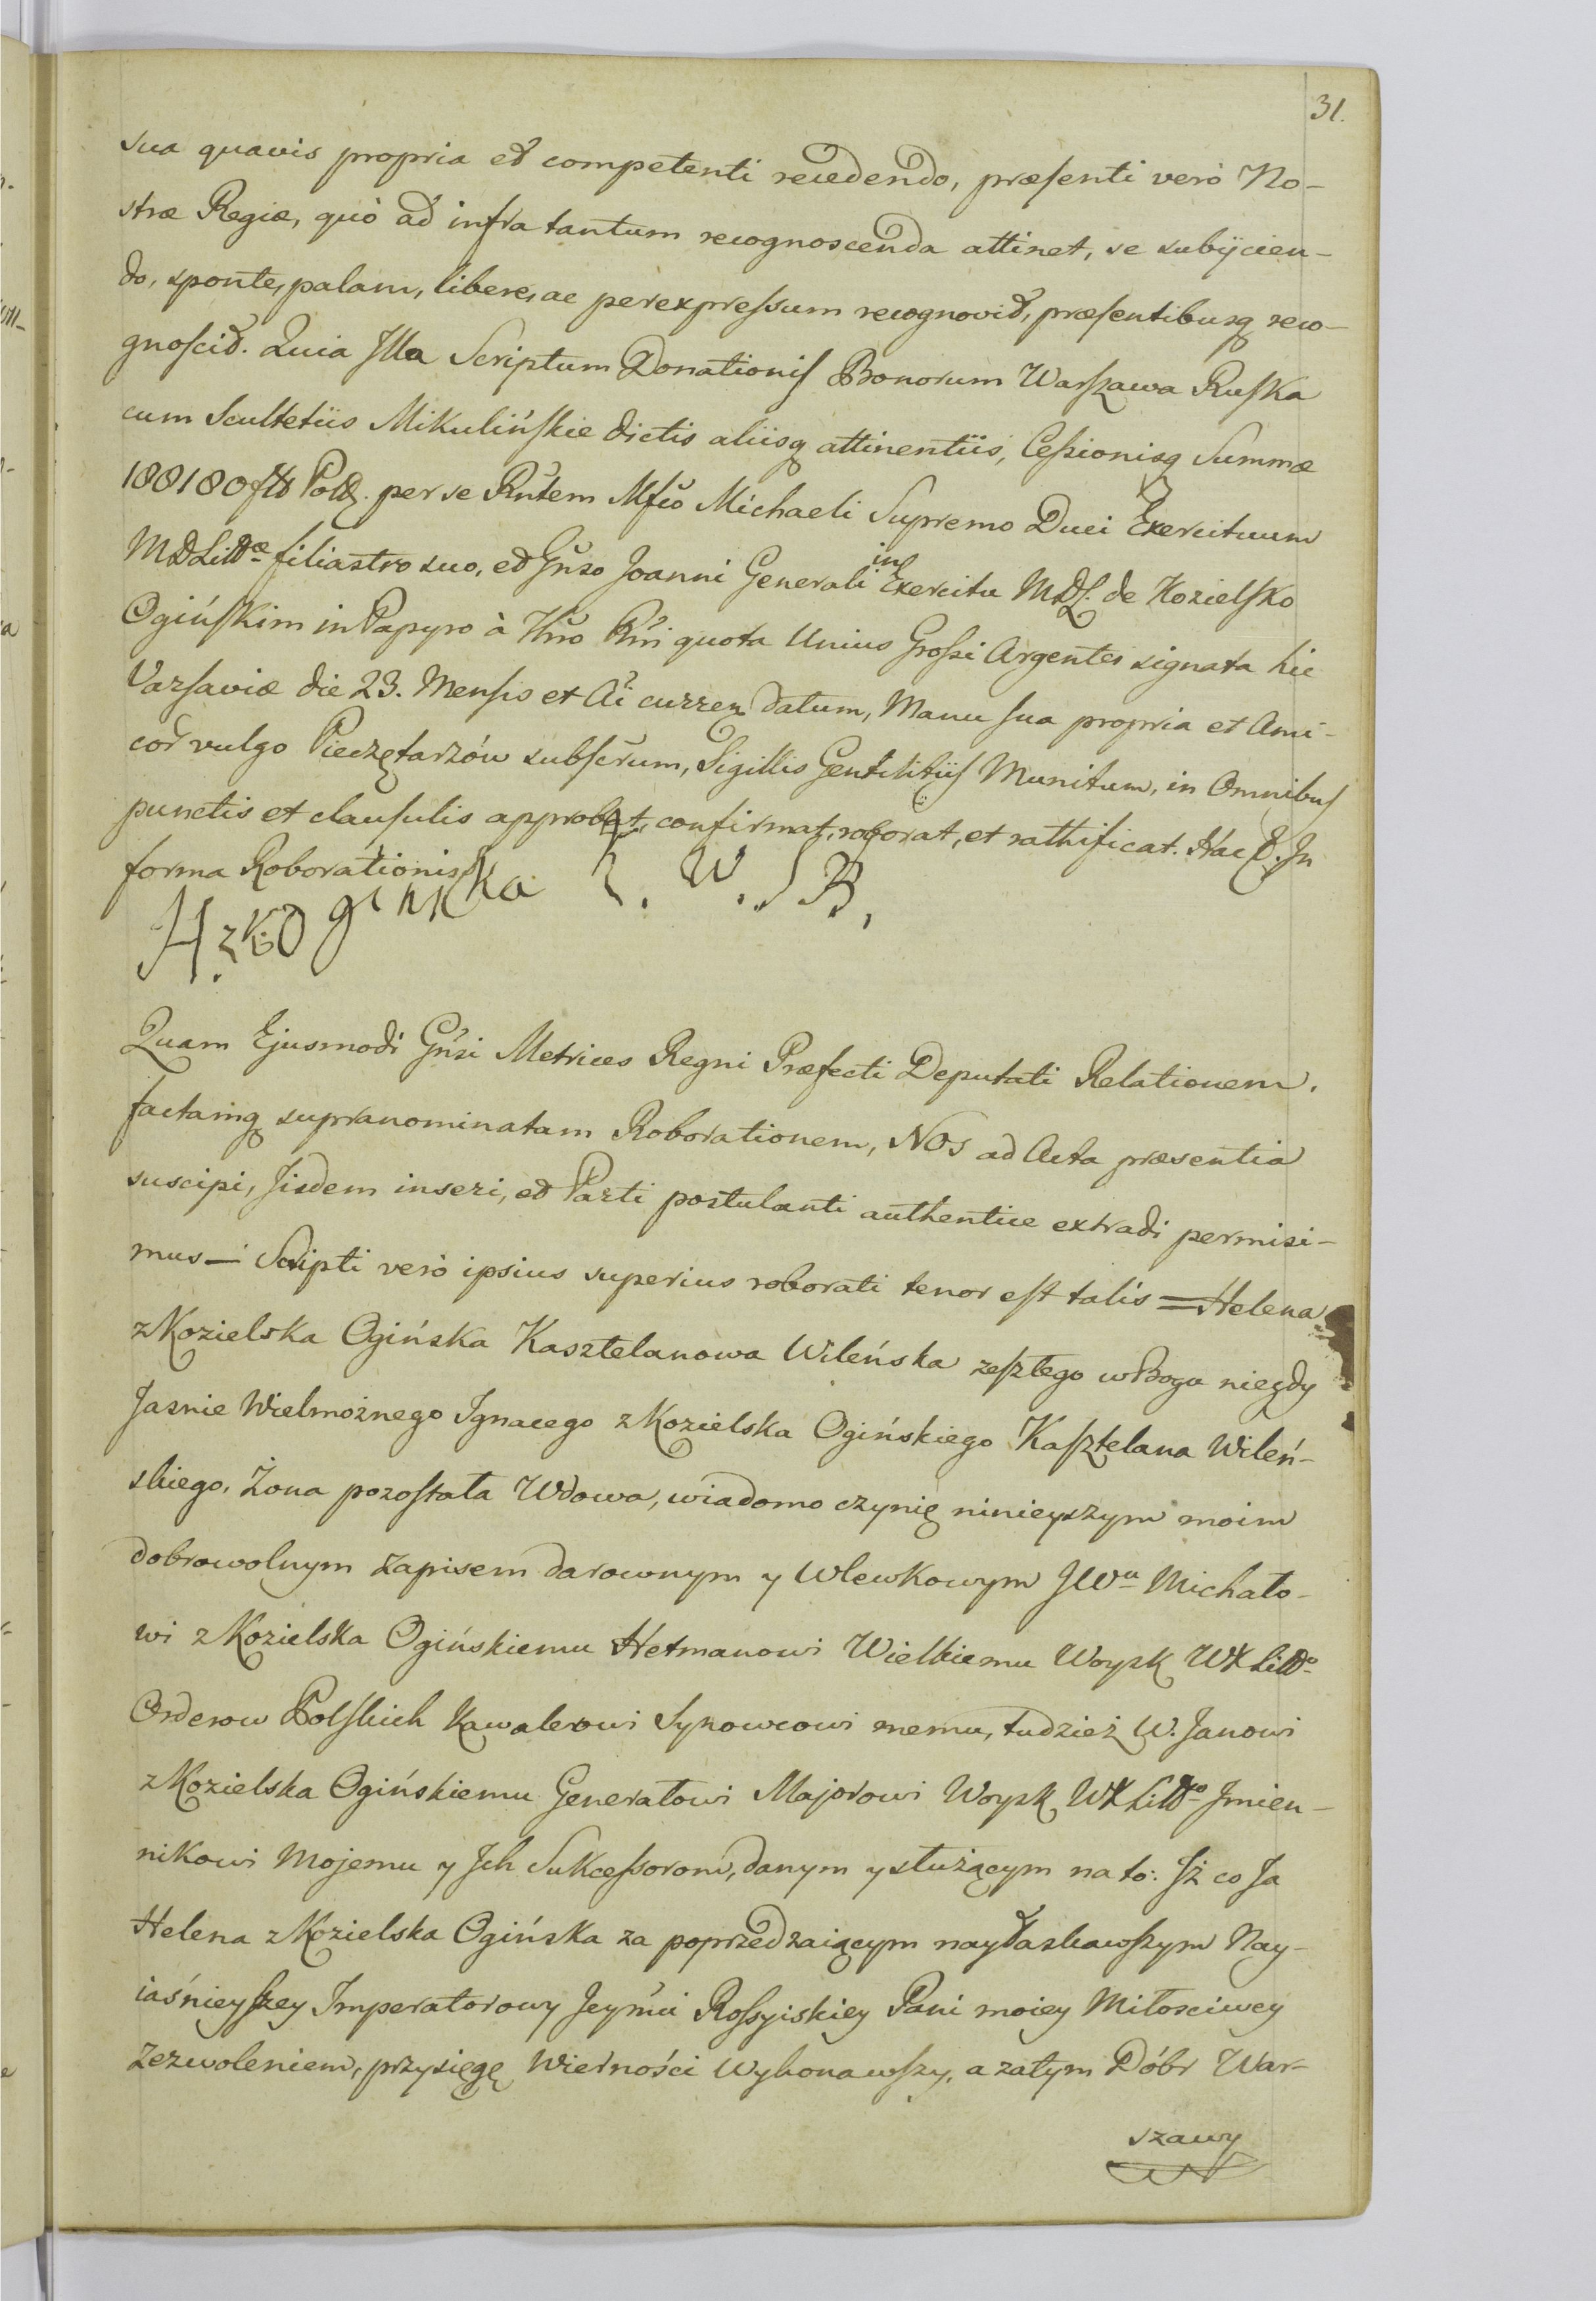 31.
sua quavis propria et competenti recedendo, præsenti verò No-
stræ Regiæ, quò ad infra tantum recognoscenda attinet, se subijcien-
do, sponte, palam, libere, ac per expressum recognovit, præsentibusq reco-
gnoscit. Quia Illa Scriptum Donationis Bonorum Warszawa Ruska
cum Scultetiis Mikulińskie dictis aliisq attinentiis, Cessionisq Summæ
188180 flo Pol. per se Rntem Mfco Michaeli Supremo Duci Exercituum
MDLittæ filiastro suo, et Gnso Joanni Generali in Exercitu MDL. de Kozielsko
Ogińskim in Papyro à Thro Rni quota Unius Grossi Argentei signata hic
Varsaviæ die 23. Mensis et Ai curren datum, Manu sua propria et Ami-
cor vulgo Pieczętarzów subscrum, Sigillis Gentilitiis Munitum, in Omnibus
punctis et clausulis approbat, confirmat, roborat, et rathificat. Hac In
forma Roborationis
H. z K. Oginska K. W. S B.
Quam Ejusmodi Gnsi Metrices Regni Præfecti Deputati Relationem,
factamq supranominatam Roborationem, NOS ad Acta præsentia
suscipi, Iisdem inseri, et Parti postulanti authentice extradi permisi-
mus — Scripti verò ipsius superius roborati tenor est talis = Helena
z Kozielska Ogińska Kasztelanowa Wileńska zeszłego w Bogu niegdy
Jasnie Wielmożnego Ignacego z Kozielska Ogińskiego Kasztelana Wileń-
skiego, Żona pozostała Wdowa, wiadomo czynię ninieyszym moim
dobrowolnym zapisem darownym y wlewkowym JWu Michało-
wi z Kozielska Ogińskiemu Hetmanowi Wielkiemu Woysk WXLitto
Orderow Polskich Kawalerowi Synowcowi memu, tudzież W. Janowi
z Kozielska Ogińskiemu Generałowi Majorowi Woysk WXLitto Jmien-
nikowi Mojemu y Ich Sukcessorom, danym y służącym na to: Iż co Ja
Helena z Kozielska Ogińska za poprzedzaiącym nayłaskawszym Nay-
iaśnieyszey Imperatorowy Jeymci Rossyiskiey Pani moiey Miłosciwey
Zezwoleniem, przysięgę Wierności Wykonawszy, a zatym Dóbr War-
szawy